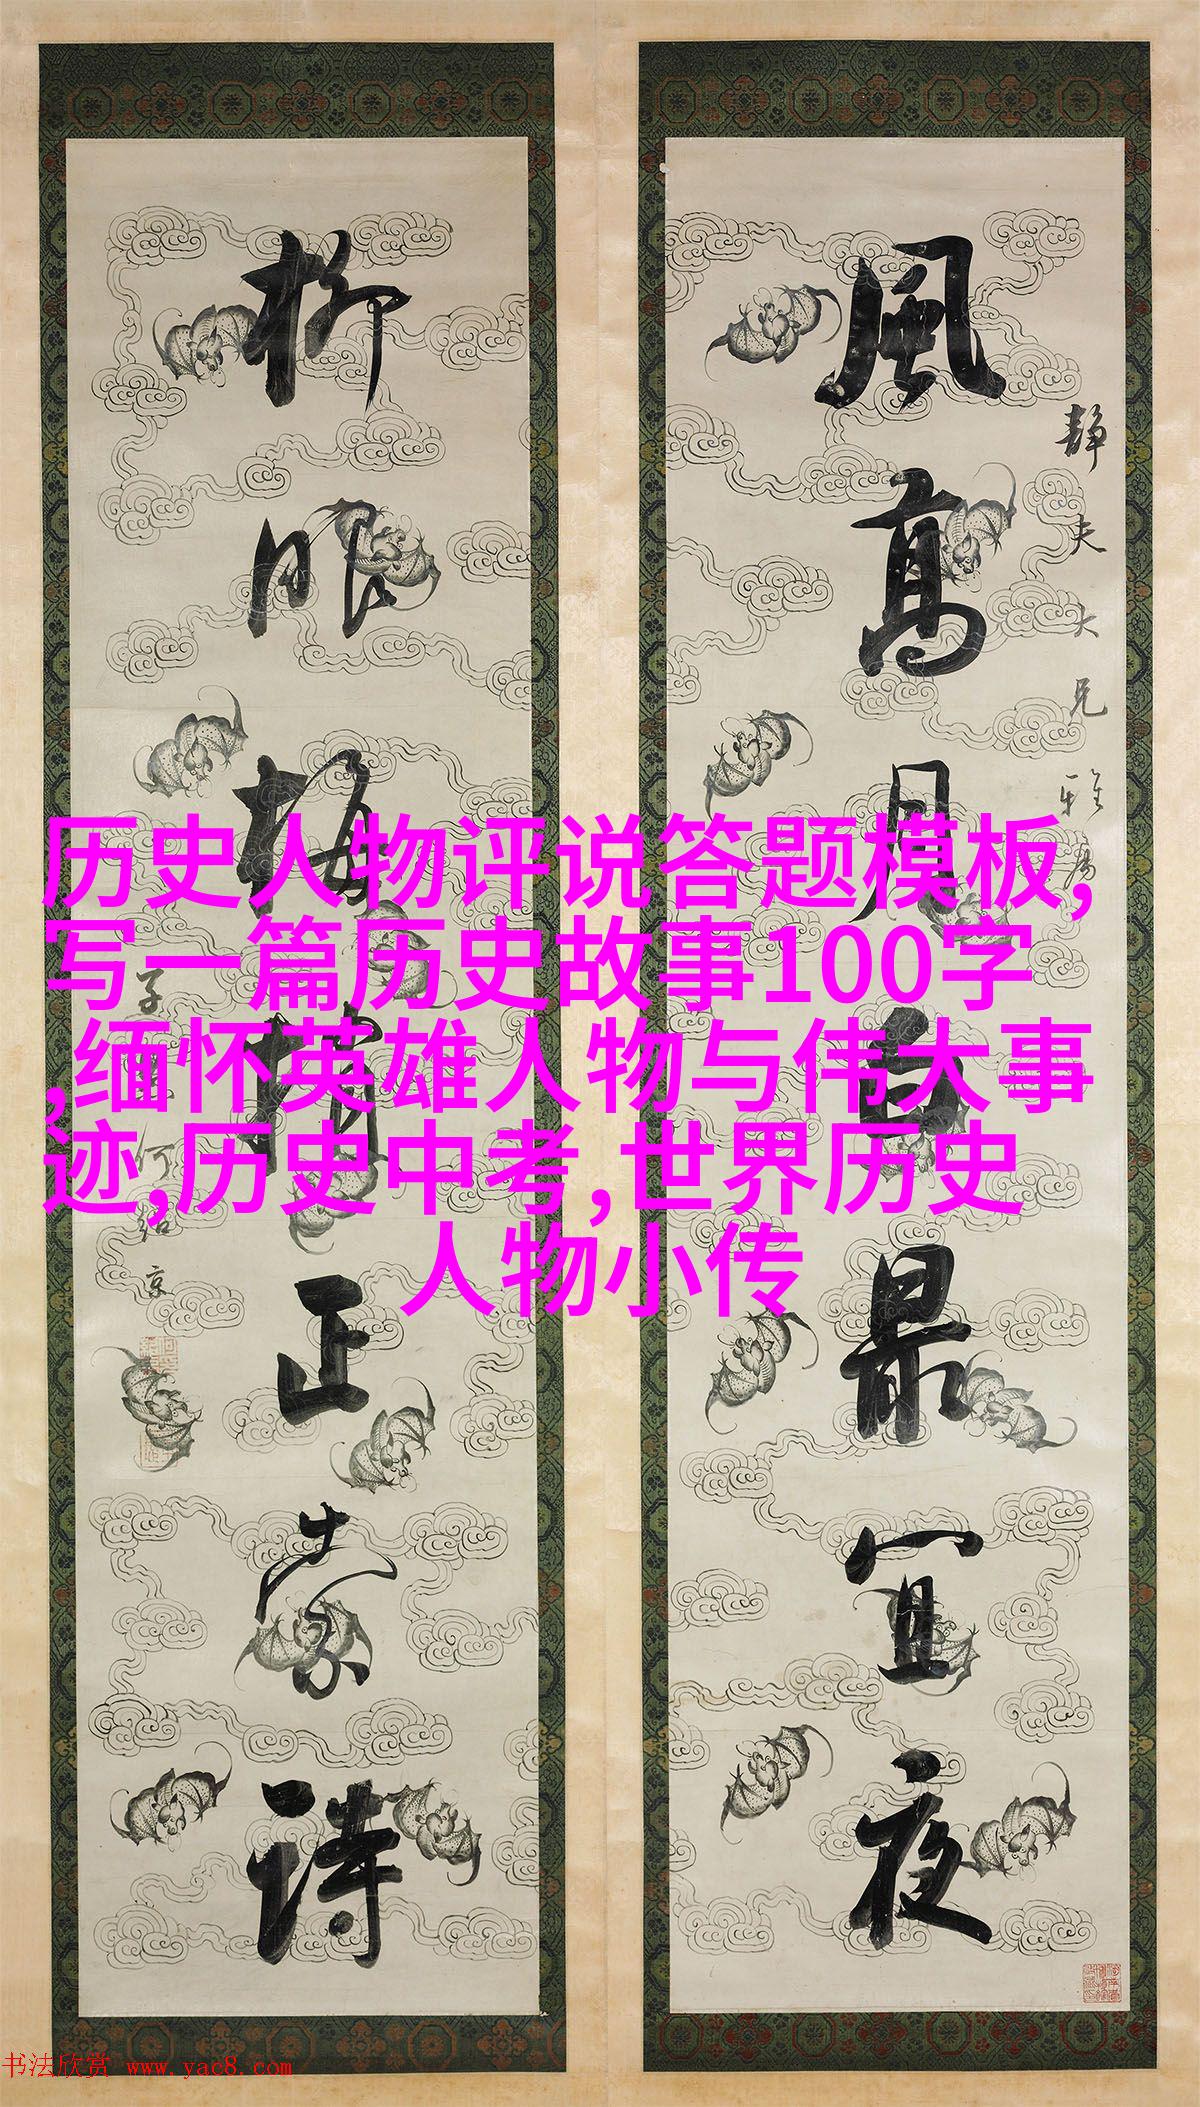 風高月白最宜夜
靜夫大兄雅屬
柳眼梅梢正索詩
子貞何紹京
历史人物评说答题模板,
写一篇历史故事100字
,缅怀英雄人物与伟大事
迹,历史中考,世界历史
人物小传
书法欣赏 www.yac8.com